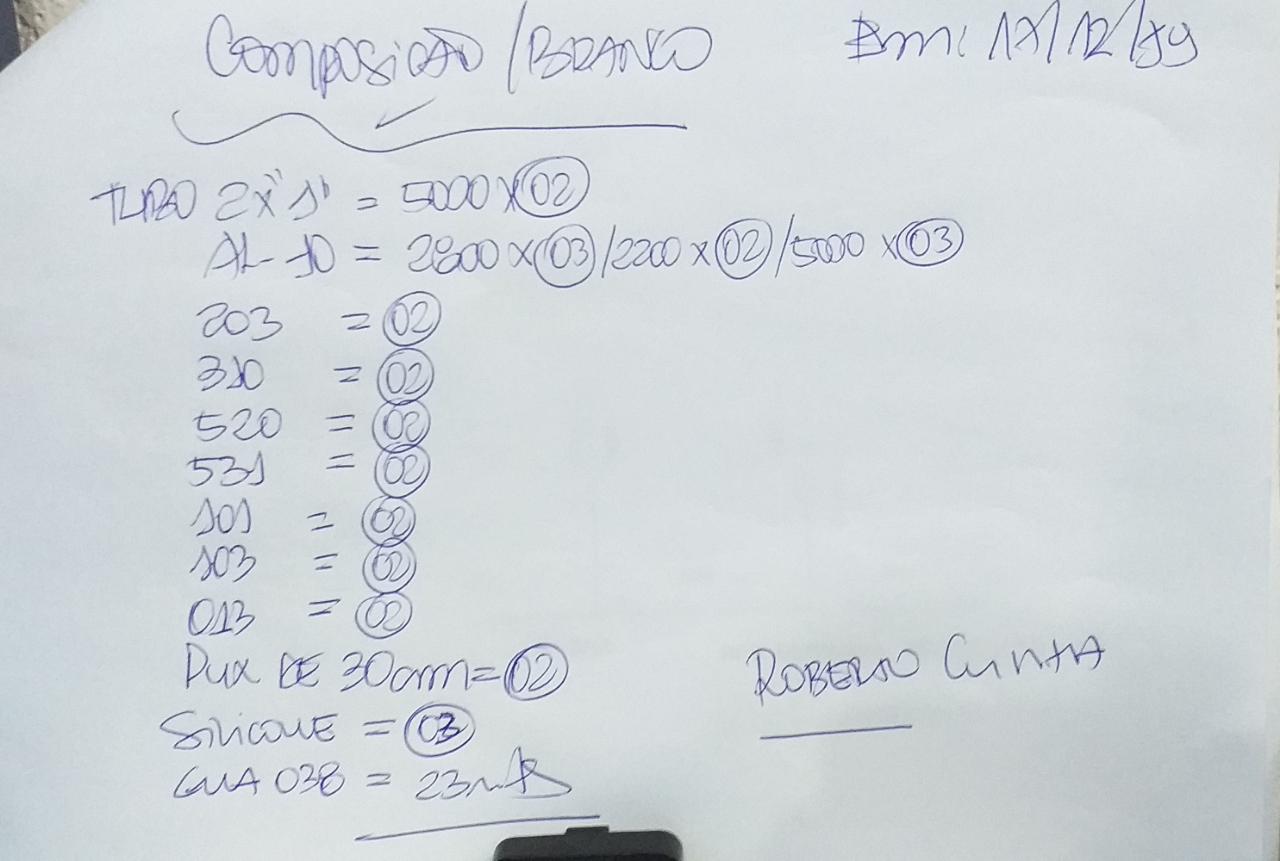 Composição / BRANCO
Em: 17/12/19
TUBO 2x"1" = 5000 x 02
AL-10 = 2800 x 03 / 2200 x 02 / 5000 x 03
203 = 02
310 = 02
520 = 02
531 = 02
101 = 02
103 = 02
013 = 02
Pux DE 30cm = 02
ROBERTO CUNHA
SILICONE = 03
GUA 038 = 23mts